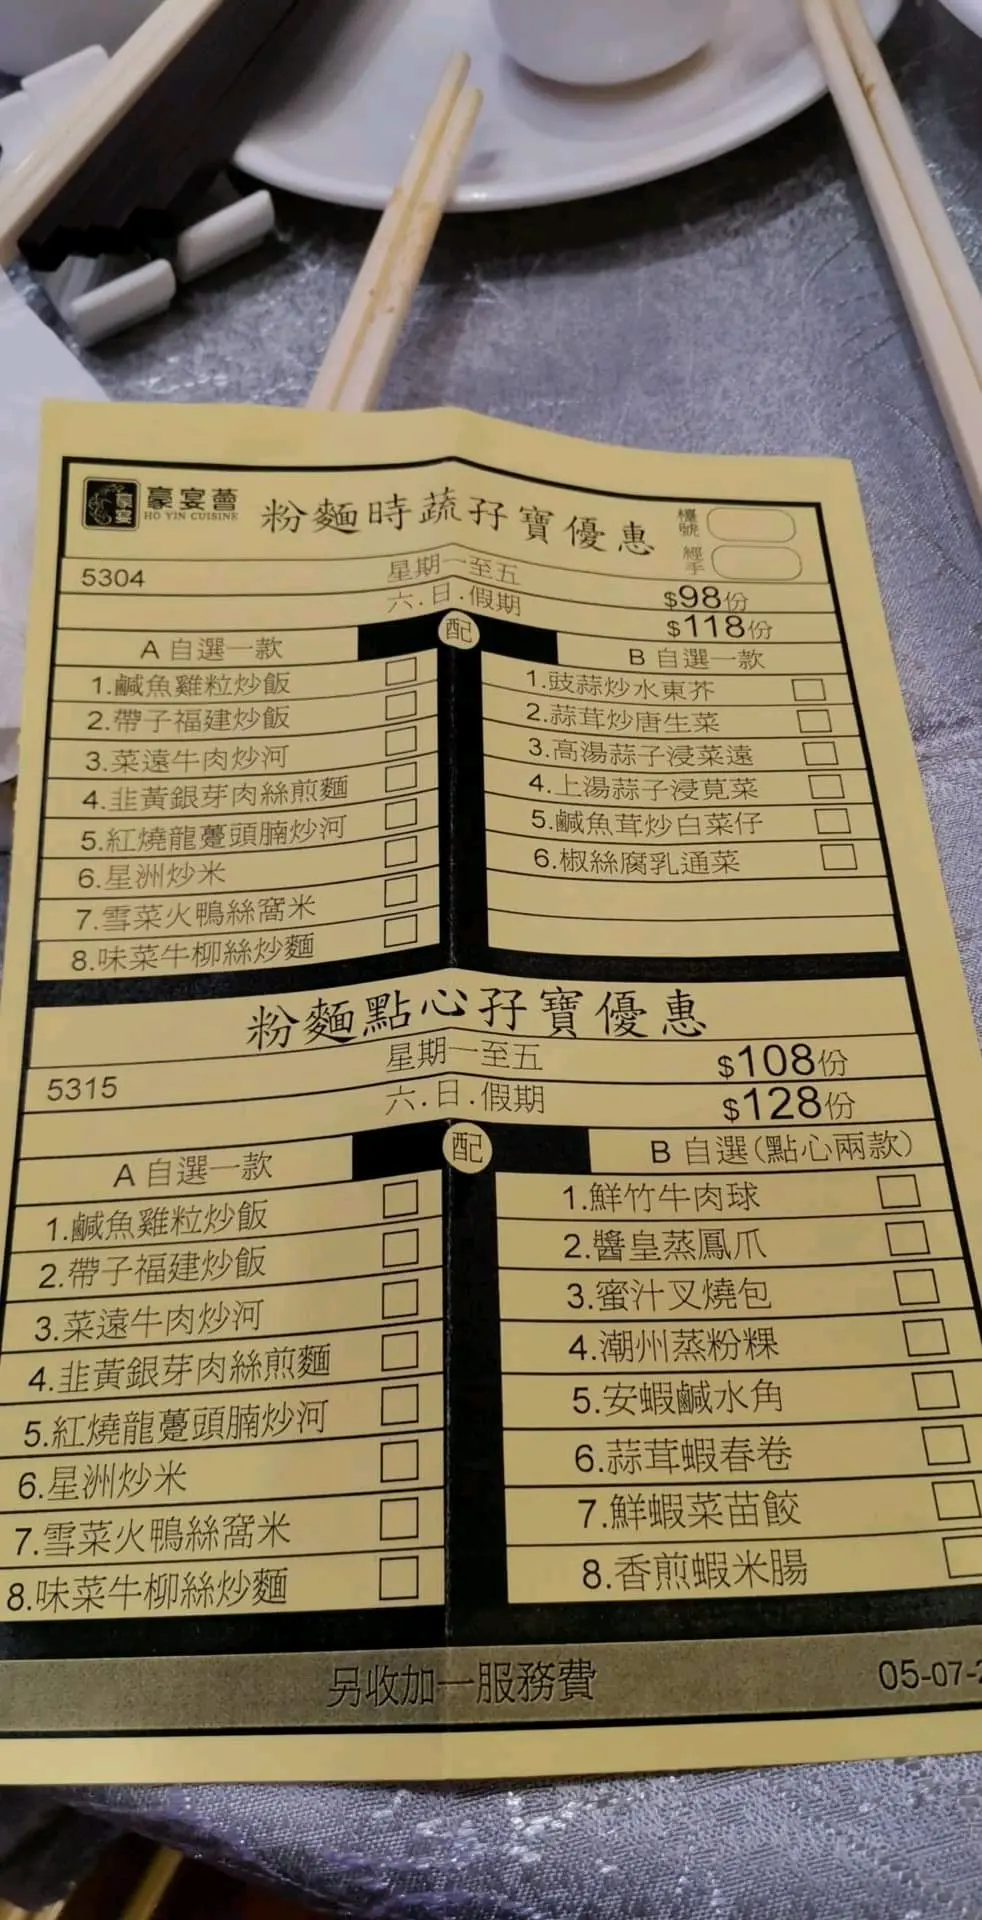 豪宴
豪宴薈
HO YIN CUISINE
粉麵時蔬孖寶優惠
檯號
經手
5304
星期一至五
$98份
六.日.假期
$118份
配
A 自選一款
B 自選一款
1.鹹魚雞粒炒飯
2.帶子福建炒飯
3.菜遠牛肉炒河
4.韭黃銀芽肉絲煎麵
5.紅燒龍躉頭腩炒河
6.星洲炒米
7.雪菜火鴨絲窩米
8.味菜牛柳絲炒麵
1.豉蒜炒水東芥
2.蒜茸炒唐生菜
3.高湯蒜子浸菜遠
4.上湯蒜子浸莧菜
5.鹹魚茸炒白菜仔
6.椒絲腐乳通菜
粉麵點心孖寶優惠
5315
星期一至五
$108份
六.日.假期
$128份
配
A 自選一款
B 自選(點心兩款)
1.鹹魚雞粒炒飯
2.帶子福建炒飯
3.菜遠牛肉炒河
4.韭黃銀芽肉絲煎麵
5.紅燒龍躉頭腩炒河
6.星洲炒米
7.雪菜火鴨絲窩米
8.味菜牛柳絲炒麵
1.鮮竹牛肉球
2.醬皇蒸鳳爪
3.蜜汁叉燒包
4.潮州蒸粉粿
5.安蝦鹹水角
6.蒜茸蝦春卷
7.鮮蝦菜苗餃
8.香煎蝦米腸
另收加一服務費
05-07-2